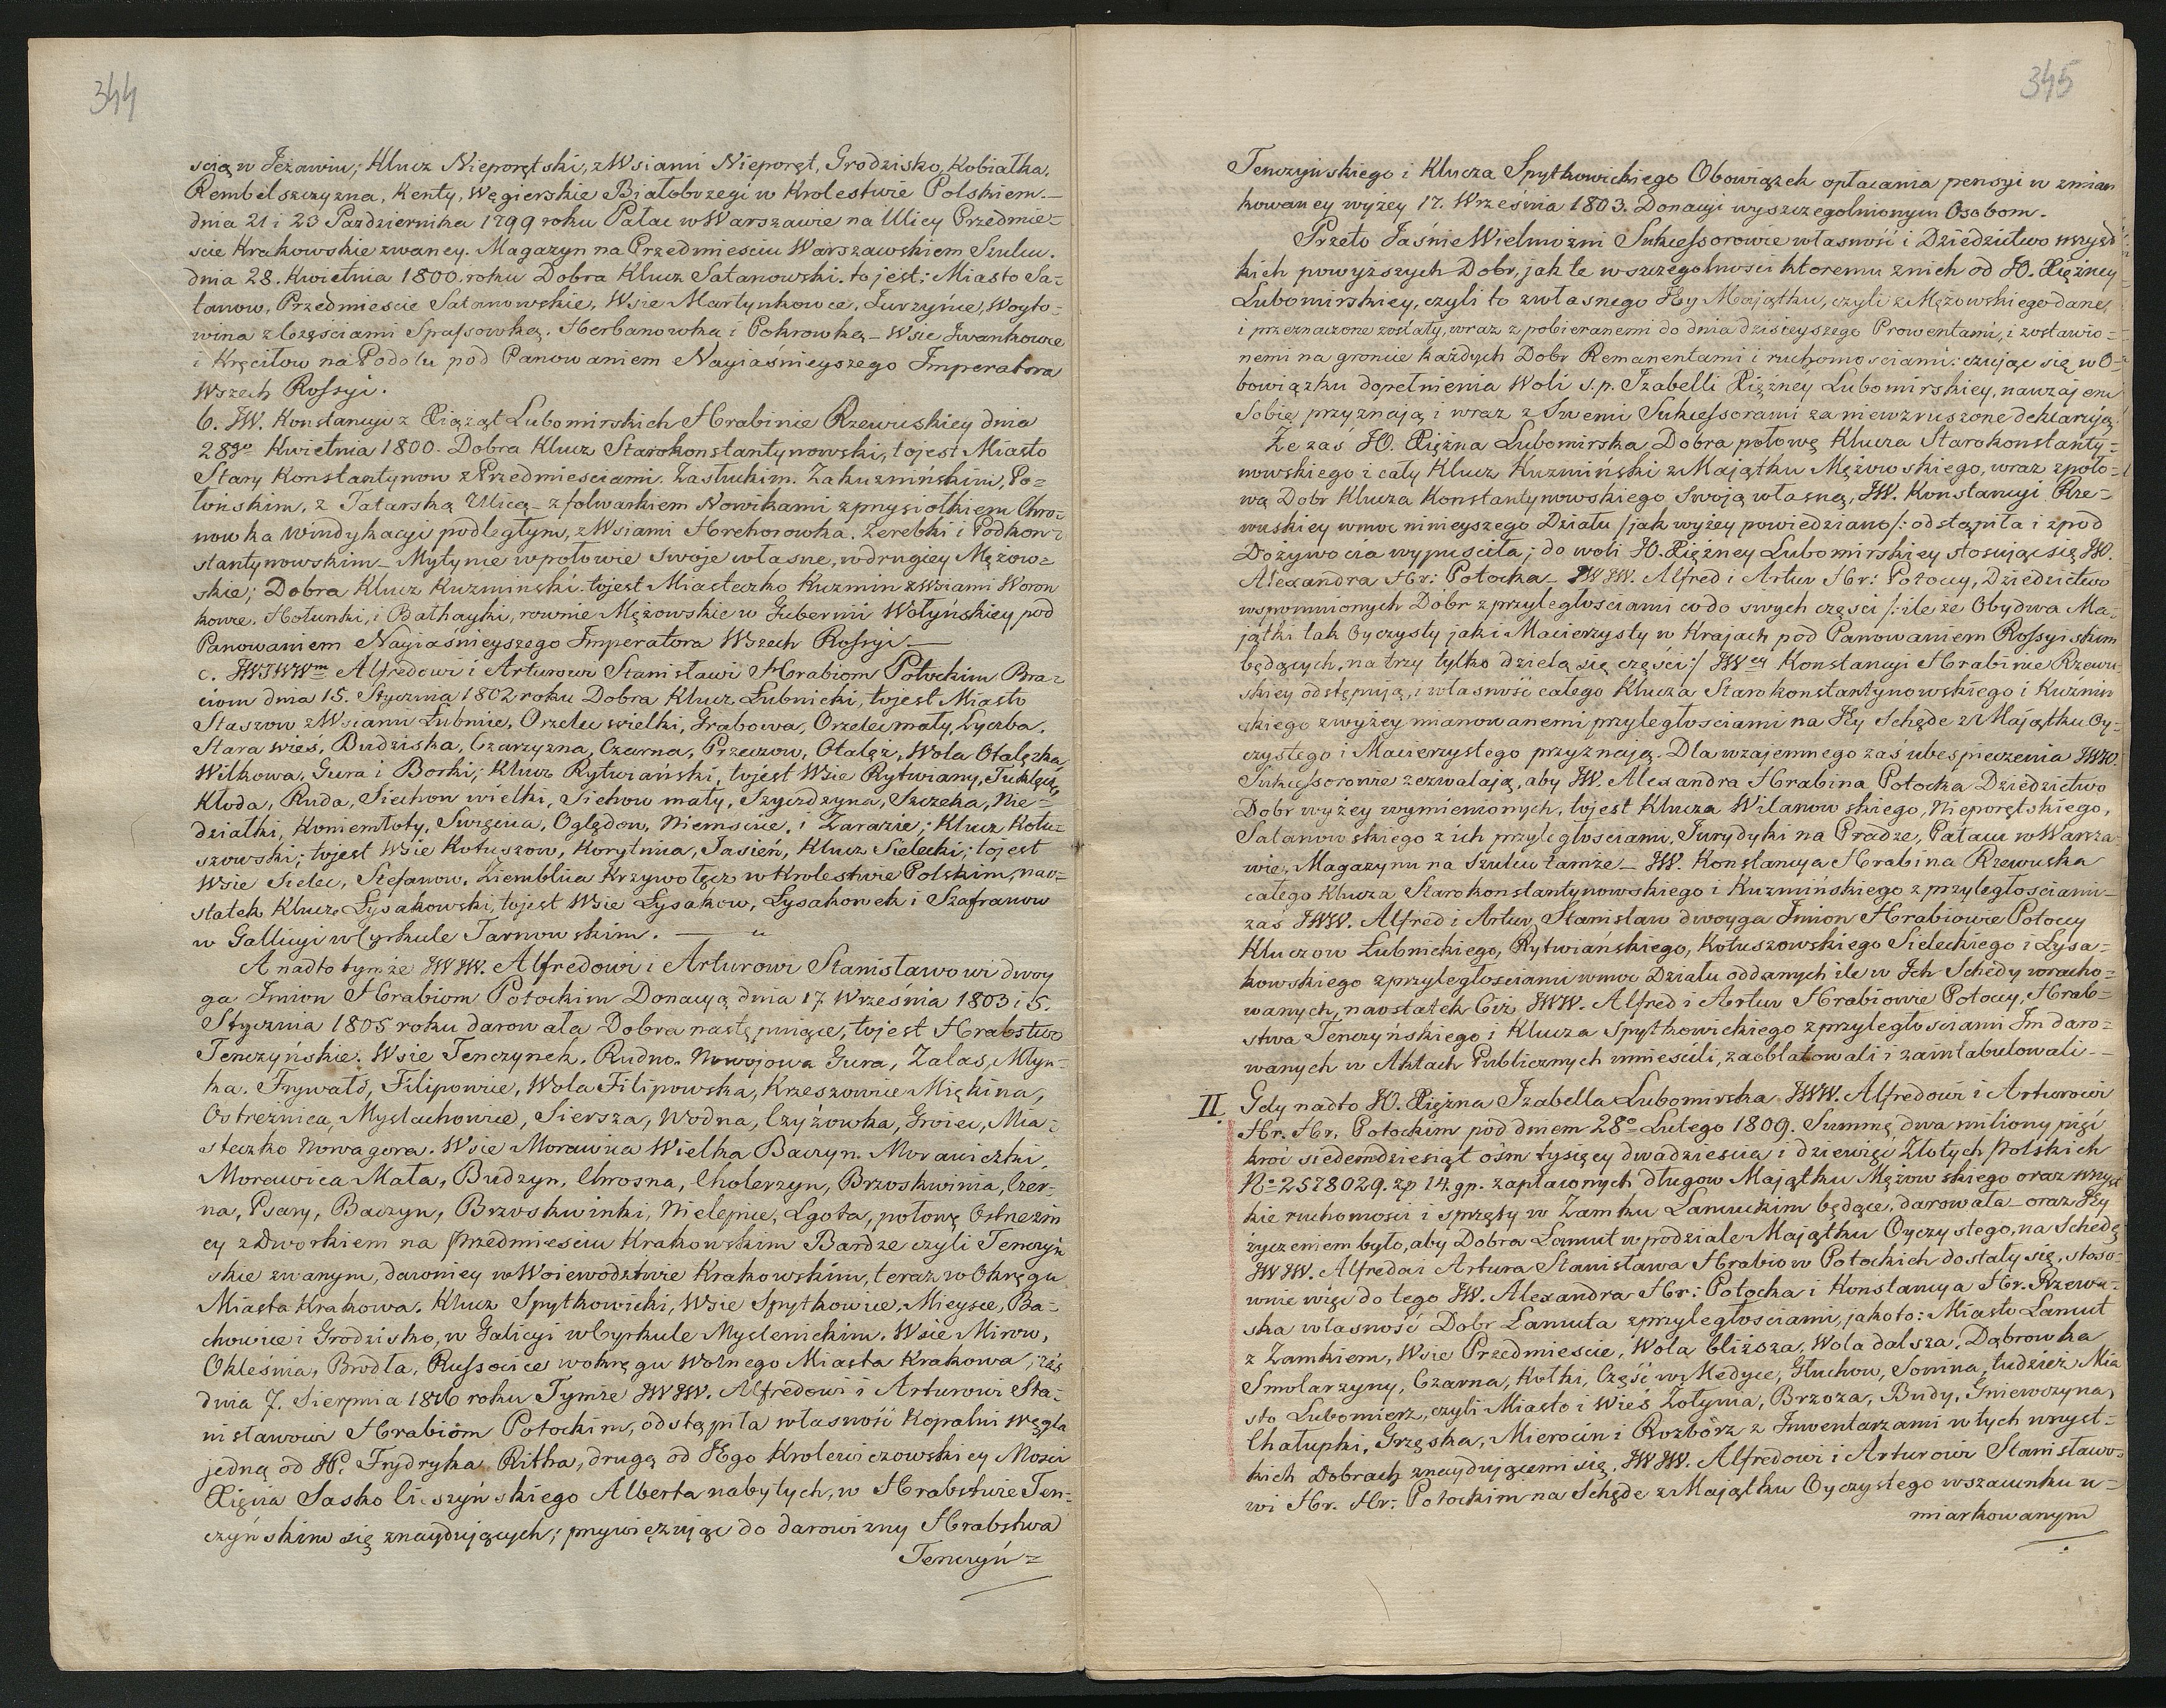 344
scią w Jeżawiu; Klucz Nieporętski, z Wsiami Nieporęt, Grodzisko, Kobiałka,
Rembelszczyzna, Kenty, Węgierskie Białobrzegi w Krolestwie Polskiem.—
dnia 21 i 23 Pazdziernika 1799 roku Pałac w Warszawie na Ulicy Przedmie=
scie Krakowskie zwaney. Magazyn na Przedmiesciu Warszawskiem Szulcu.
dnia 28. Kwietnia 1800. roku Dobra Klucz Satanowski. to jest: Miasto Sa=
tanow, Przedmiescie Satanowskie, Wsie Martynkowce, Jurzyńce, Woyto=
wina z Częsciami Spassowką. Herbanowką i Pokrowką – Wsie Iwankowce
i Kręciłow na Podolu pod Panowaniem Nayiasnieyszego Imperatora
Wszech Rossyi.
b. JW. Konstancyi z Xiążąt Lubomirskich Hrabinie Rzewuskiey dnia
28go Kwietnia 1800. Dobra Klucz Starokonstantynowski, to jest Miasto
Stary Konstantynow z Przedmiesciami. Zasłuckim. Zakuzmińskim, Po=
łońskim, z Tatarską Ulicą – z folwarkiem Nowikami z przysiołkiem Chro=
nowka windykacyi podległym, z Wsiami Hrehorowka. Zerebki i Podkon=
stantynowskim – Mytynce w połowie swoje własne, w drugiey Mężow=
skie; Dobra Klucz Kuzminski. to jest Miasteczko Kuzmin z Wsiami Woron
kowce. Hołunki, i Bathayki, rownie Mężowskie w Gubernii Wołyńskiey pod
Panowaniem Nayiaśnieyszego Imperatora Wszech Rossyi —
c. JWJWWm Alfredowi i Arturowi Stanisławi Hrabiom Potockim Bra=
ciom dnia 15. Stycznia 1802 roku Dobra Klucz Łubnicki, to jest Miasto
Staszow z Wsiami Łubnice, Orzelec wielki, Grabowa, Orzelec mały, Łyczba.
Stara wieś, Budziska, Czarzyzna, Czarna, Przeczow, Otalęz, Wola Otalęzka
Wilkowa, Gura i Borki; Klucz Rytwiański, to jest Wsie Rytwiany,
Kłoda, Ruda, Siechow wielki, Sichow mały, Szczeka, Nie=
działki, Koniemłoty, Oględow, Niemscice, i Zarazie; Klucz Kotu=
szowski; to jest Wsie Kotuszow, Korytnica, Jasień, Klucz Sielecki; to jest
Wsie Sielec, Stefanow, Ziemblica Krzywołęcz w Krolestwie Polskim, nao=
statek Klucz Łysakowski, to jest Wsie Łysakow, Łysakowek i Szafranow
w Gallicyi w Cyrkule Tarnowskim. — "
A nadto tymże JWJW. Alfredowi i Arturowi Stanisławowi dwoy
ga Imion Hrabiom Potockim Donacyą dnia 17 Września 1803 i 5.
Stycznia 1805 roku darowała Dobra następuiące, to jest Hrabstwo
Tenczyńskie. Wsie Tenczynek, Rudno. Nowojowa Gura, Zalas, Młyn=
ka. Frywałd, Filipowice, Wola Filipowska, Krzeszowice Miękina,
Ostreżnica, Myslachowice, Siersza, Wodna, Czyżowka, Groiec, Mia=
steczko Nowagora. Wsie Morawica Wielka Baczyn. Morawiczki,
Morawica Mała, Budzyn, Chrosna, Cholerzyn, Brzoskwinia, Czer=
na, Psary, Baczyn, Brzoskwinki, Nielepice, Lgota, połowę Ostreżni
cy z Dworkiem na Przedmiesciu Krakowskim Bardze czyli Tenczyń
skie zwanym, dawniey w Woiewodztwie Krakowskim, teraz w Okręgu
Miasta Krakowa. Klucz Spytkowicki, Wsie Spytkowice, Mieysce, Ba=
chowice i Grodzisko, w Galicyi w Cyrkule Myslenickim. Wsie Mirow,
Okleśnia, Brodła, Russocice w okręgu Wolnego Miasta Krakowa; zaś
dnia 7. Sierpnia 1816 roku Tymże JWJW. Alfredowi i Arturowi Sta=
nisławowi Hrabiom Potockim, odstąpiła własność Kopalni Węgla
jedną od JP. Frydryka Ritha, drugą od JEgo Krolewiczowskiey Mosci
Xięcia Sasko Cieszyńskiego Alberta nabytych, w Hrabstwie Ten=
czyńskim się znaydujących; przywięzując do darowizny Hrabstwa
Tenczyń=
345
Tenczyńskiego i Klucza Spytkowickiego Obowiązek opłacania pensyi w zmian
kowaney wyżey 17. Września 1803. Donacyi wyszczegolnionym Osobom.
Przeto Jaśnie Wielmożni Sukcessorowie własność i Dziedzictwo wszyst
kich powyższych Dobr, jak te w szczegolnosci ktoremu z nich od JO. Xiężney
Lubomirskiey, czyli to z własnego Jey Majątku, czyli z Mężowskiego dane,
i przeznaczone zostały, wraz z pobieranemi do dnia dzisieyszego Prowentami, i zostawio=
nemi na groncie każdych Dobr Remanentami i ruchomosciami: czując się w O=
bowiązku dopełnienia Woli s.p. Izabelli Xiężney Lubomirskiey, nawzajem
Sobie przyznają i wraz z Swemi Sukcessorami za niewzruszone deklarują.
Że zaś JO. Xiężna Lubomirska Dobra połowę Klucza Starokonstanty=
nowskiego i cały Klucz Kuzminski z Majątku Mężowskiego, wraz z poło=
wą Dobr Klucza Konstantynowskiego Swoją własną, JW. Konstancyi Rze=
wuskiey w moc ninieyszego Działu /: jak wyżey powiedziano :/ odstąpiła i z pod
Dożywocia wypuściła; do woli JO. Xiężney Lubomirskiey stosując się JW.
Alexandra Hr: Potocka – JWJW. Alfred i Artur Hr: Potoccy, Dziedzictwo
wspomnionych Dobr z przyległosciami co do swych części /: ile że Obydwa Ma=
jątki tak Oyczysty jak i Macierzysty w Krajach pod Panowaniem Rossyiskim
będących, na trzy tylko dzielą się części :/ JWey Konstancyi Hrabinie Rzewu
skiey odstępują, i własność całego Klucza Starokonstantynowskiego i Kuźmin
skiego z wyżey mianowanemi przyległosciami na Jey Schędę z Majątku Oy=
czystego i Macierzystego przyznają. Dla wzajemnego zas ubespieczenia JWW.
Sukcessorowie zezwalają, aby JW. Alexandra Hrabina Potocka Dziedzictwo
Dobr wyżey wymienionych, to jest Klucza Wilanowskiego, Nieporętskiego,
Satanowskiego z ich przyległosciami, Jurydyki na Pradze, Pałacu w Warsza
wie, Magazynu na Szulcu tamże – JW. Konstancya Hrabina Rzewuska
całego Klucza Starokonstantynowskiego i Kuzmińskiego z przyległosciami –
zaś JWW. Alfred i Artur Stanisław dwoyga Imion Hrabiowie Potoccy
Kluczow Łubnickiego, Rytwiańskiego, Kotuszowskiego Sieleckiego i Łysa=
kowskiego z przyległosciami w moc Działu oddanych ile w Ich Schedy wracho=
wanych, naostatek Ciż JWW. Alfred i Artur Hrabiowie Potoccy, Hrab=
stwa Tenczyńskiego i Klucza Spytkowickiego z przyległosciami Im daro=
wanych w Aktach Publicznych umieścili, zaoblatowali i zaintabulowali. —
II. Gdy nadto JO. Xiężna Izabella Lubomirska JWW. Alfredowi i Arturowi
Hr. Hr. Potockim pod dniem 28o Lutego 1809. Summę dwa miliony pięć
kroć siedemdziesiąt ośm tysięcy dwadziescia i dziewięć Złotych Polskich
No 2578029. zp 14. gp. zapłaconych długow Majątku Mężowskiego oraz wszyst
kie ruchomosci i sprzęty w Zamku Lancuckim będące, darowała – oraz Jey
życzeniem było, aby Dobra Lancut w podziale Majątku Oyczystego, na Schedę
JWJW. Alfreda i Artura Stanisława Hrabiow Potockich dostały się, stoso=
wnie więc do tego JW. Alexandra Hr: Potocka i Konstancya Hr. Rzewu=
ska własność Dobr Lancuta z przyległościami, jakoto: Miasto Lancut
z Zamkiem, Wsie Przedmiescie, Wola bliższa, Wola dalsza, Dąbrowka
Smolarzyny, Czarna, Kołki, Część w Medyce, Głuchow, Sonina, tudzież Mia
sto Lubomierz, czyli Miasto i Wieś Zołynia, Brzoza, Budy, Gniewczyna,
Chałupki, Grzęska, Mierocin i Rozbórz z Inwentarzami w tych wszyst=
kich Dobrach znaydującemi się, JWJW. Alfredowi i Arturowi Stanisławo=
wi Hr. Hr: Potockim na Schędę z Majątku Oyczystego w szacunku u=
miarkowanym